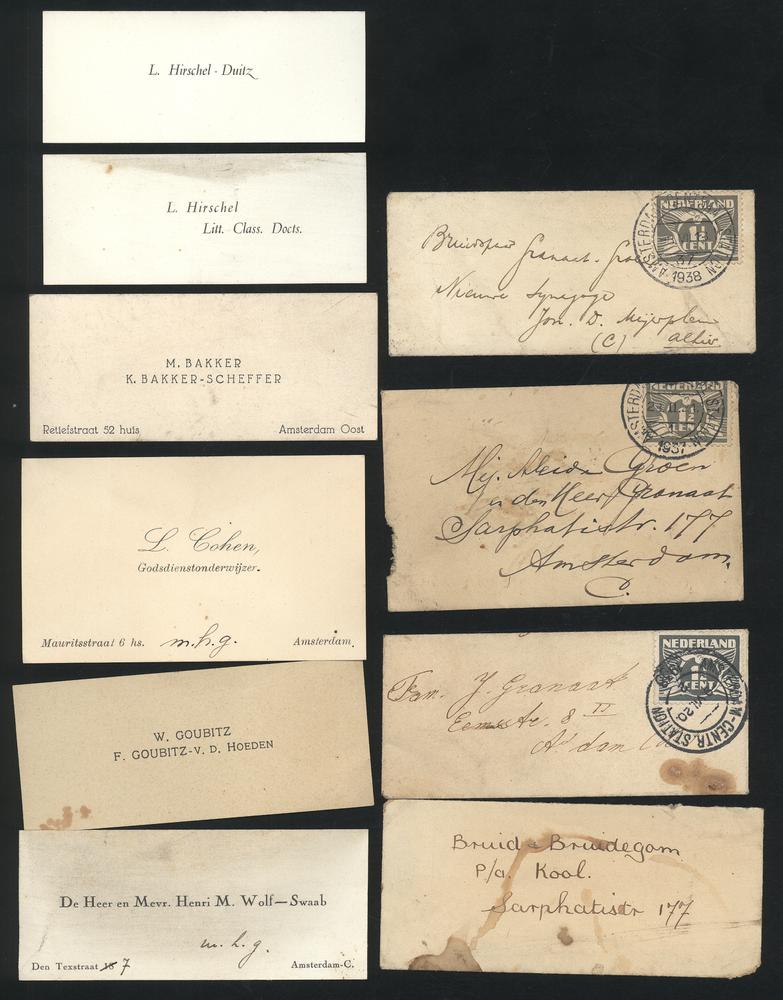 L. Hirschel - Duitz
L. Hirschel
Litt. Class. Docts.
M. BAKKER
K. BAKKER-SCHEFFER
Retiefstraat 52 huis Amsterdam Oost
L. Cohen,
Godsdienstonderwijzer.
Mauritsstraat 6 hs. m.h.g. Amsterdam.
W. GOUBITZ
F. GOUBITZ-V. D. HOEDEN
De Heer en Mevr. Henri M. Wolf—Swaab
m. h. g.
Den Texstraat 7 Amsterdam-C.
NEDERLAND
1½
CENT
AMSTERDAM
1938
Bruidspaar Granaat-
Nieuwe Synagoge
Jon. D. Meijerplein
(C) alhier
NEDERLAND
1½
CENT
AMSTERDAM
1937
Mej. Aleida Groen
en den Heer Granaat
Sarphatistr. 177
Amsterdam.
C.
NEDERLAND
CENT
CENTR. STATION
Fam. J. Granaat
Eemsstr. 8 III
A'dam
Bruid & Bruidegom
p/a. Kool.
Sarphatistr 177